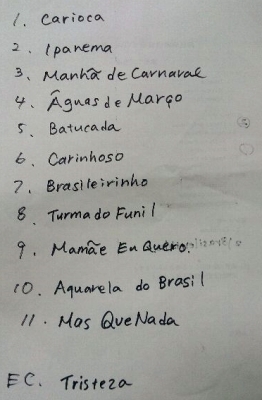 1. Carioca
2. Ipanema
3. Manhã de Carnaval
4. Águas de Março
5. Batucada
6. Carinhoso
7. Brasileirinho
8. Turma do Funil
9. Mamãe Eu Quero.
10. Aquarela do Brasil
11. Mas Que Nada
EC. Tristeza